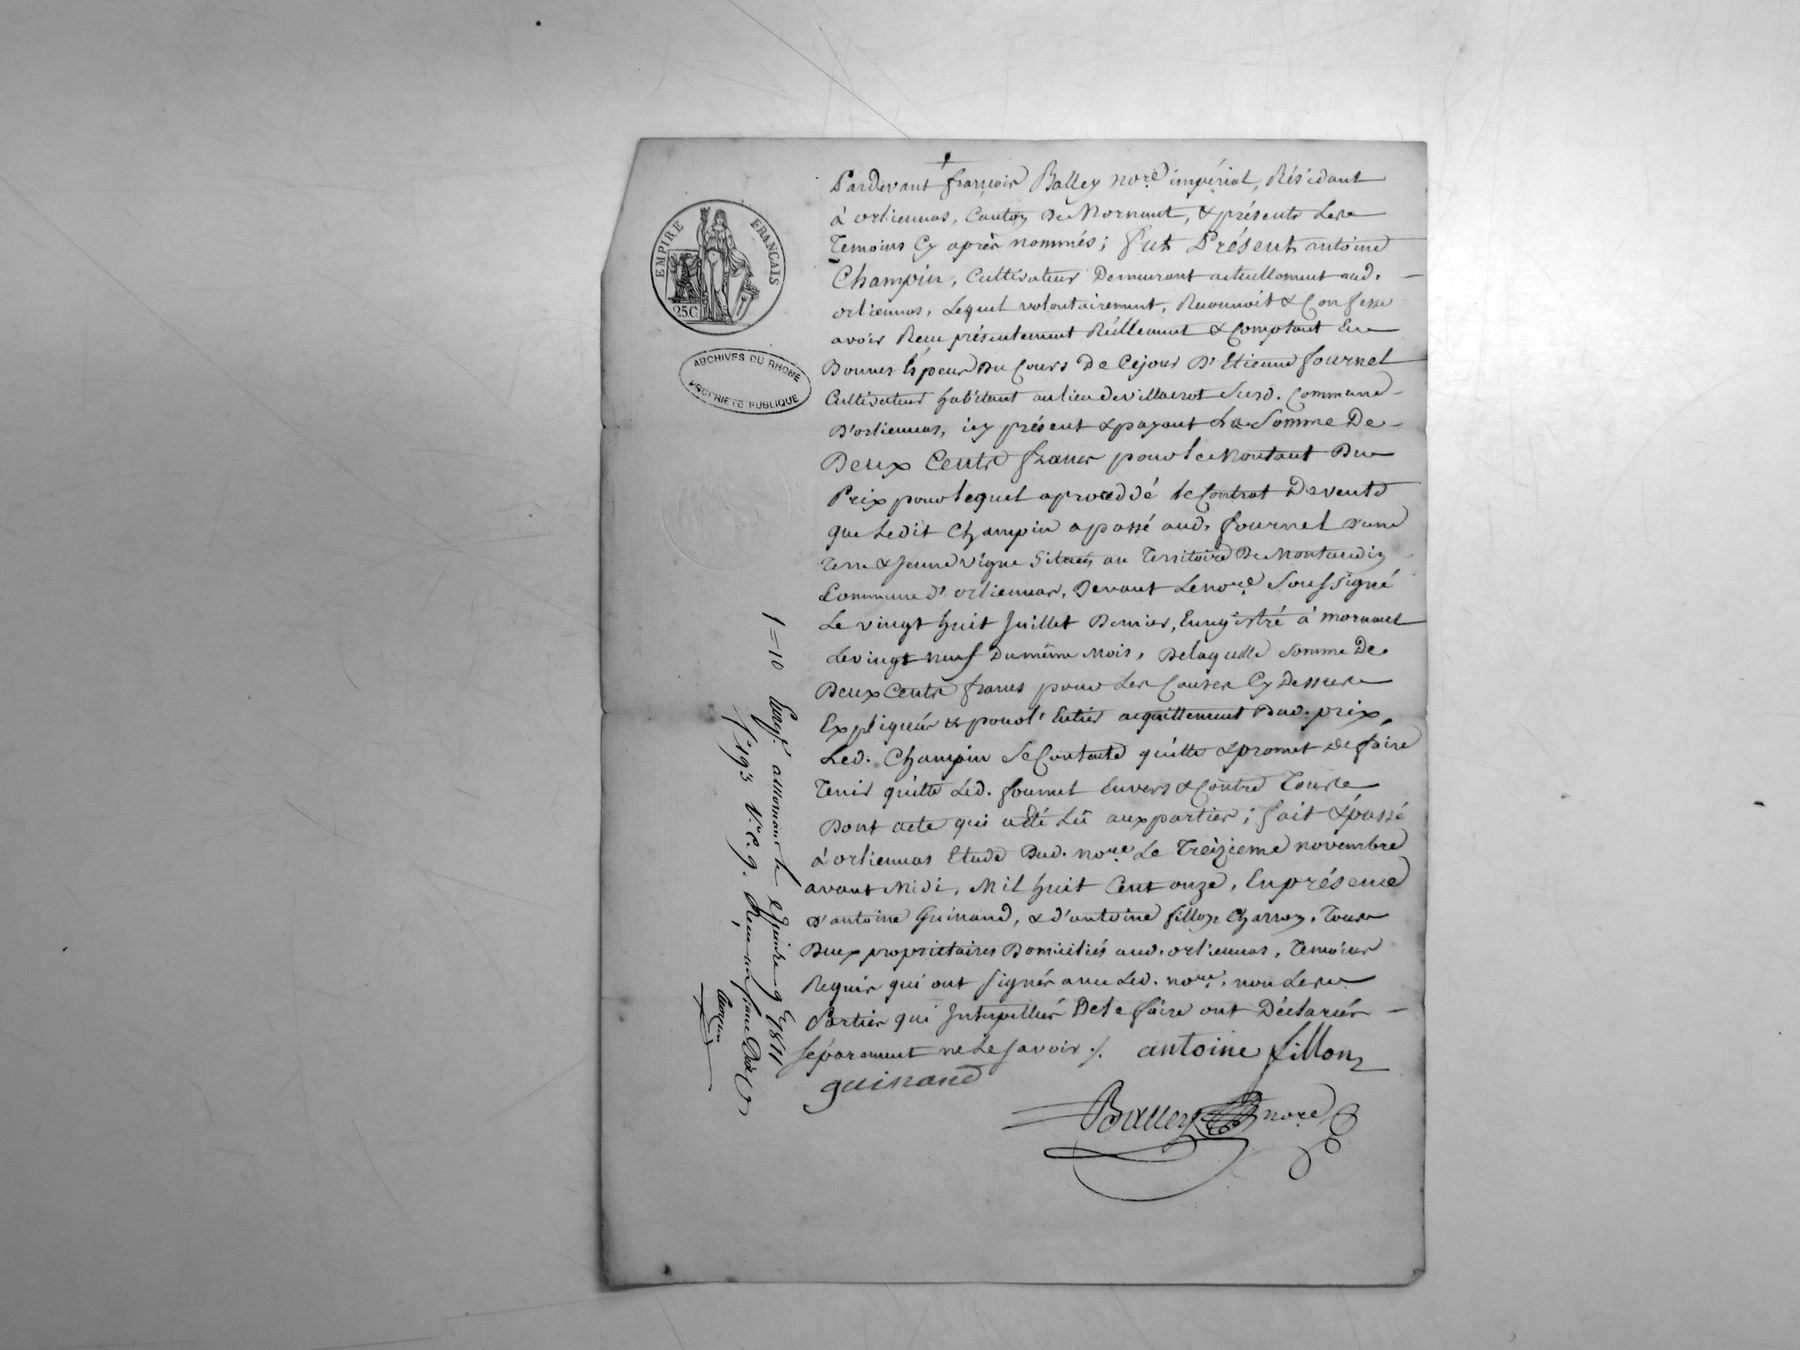 EMPIRE FRANÇAIS
25C
ARCHIVES DU RHONE
PROPRIÉTÉ PUBLIQUE
Pardevant françois Balley nore. impérial, Résidant
à orliennas, Canton De Mornant, & présents Les
Temoins Cy après nommés; fut Présent antoine
Champin, Cultivateur Demeurant actuellement aud.
orliennas, Lequel volontairement, Reconnoit & Confesse
avoir Reçu présentement Réellement & Comptant En
Bonnes Especes Du Cours De Cejour D'Etienne fournel
Cultivateur habitant au lieu de villacrot Susd. Commune
D'orliennas, icy présent & payant La Somme De
Deux Cents francs pour le Montant Du
Prix pour lequel a proceddé le Contrat De vente
que Ledit Champin a passé aud. fournel d'une
Terre & Jeune vigne Situés au Territoire De
Commune d'orliennas, Devant Le nore. Soussigné
Le vingt huit Juillet Dernier, Enregistré à mornant
Le vingt neuf Du même Mois, De laquelle Somme De
Deux Cents francs pour Les Causes Cy Dessus
Expliquées & pour l'Entier acquittement Dud. prix,
Led. Champin Se Contente quitte & promet De faire
Tenir quitte Led. fournel Envers & Contre Tous
Dont acte qui a été Lû aux parties; fait & passé
à orliennas Etude Dud. nore. Le Treizieme novembre
avant Midi, Mil huit Cent onze, En présence
d'antoine Guinand, & d'antoine fillon Charron, Tous
Deux propriétaires Domiciliés aud. orliennas, Temoins
Requis qui ont signés avec Led. nore. non Les
Parties qui Interpellées De le faire ont Déclarées
séparement ne Le savoir ./. antoine fillon
guinand
Balley nore
1=10 Enregé. a Mornant le quinze 9bre 1811
fo. 193 Vo. C. 9. Reçu un franc Dix C.